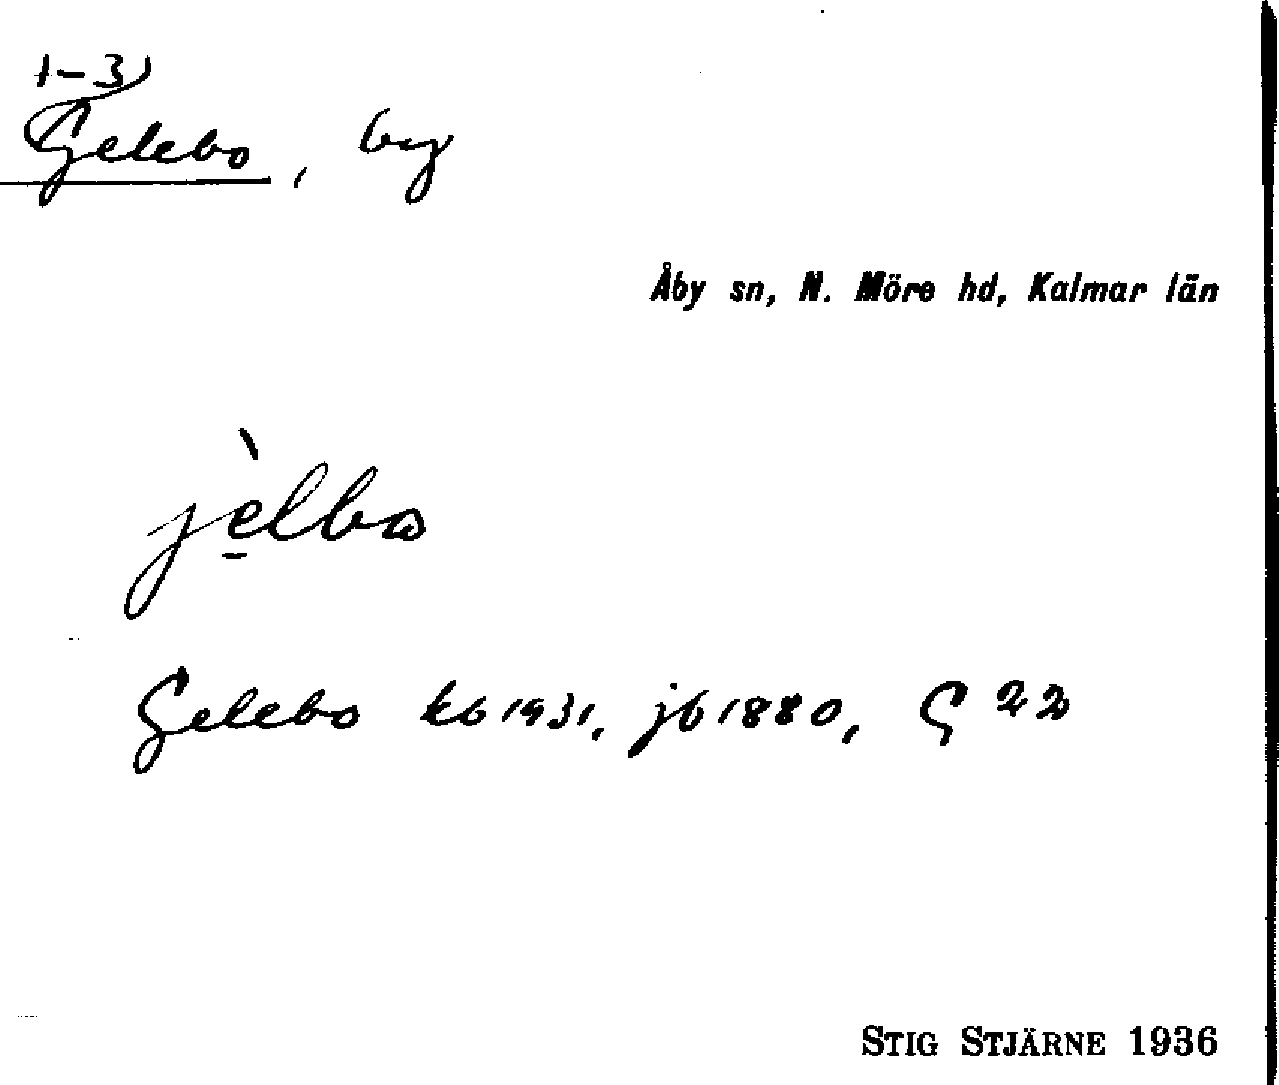 1-3)
Gelebo, by
Åby sn, N. Möre hd, Kalmar län
jèlbo
Gelebo kb 1931, jb 1880, G 22
STIG STJÄRNE 1936